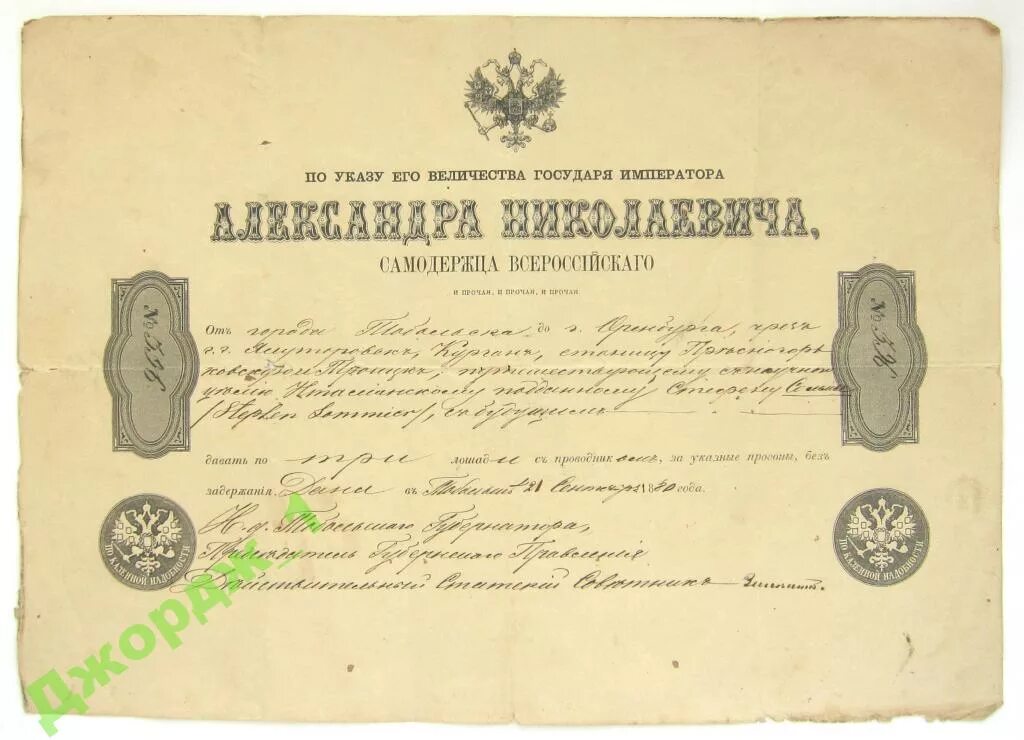 ПО УКАЗУ ЕГО ВЕЛИЧЕСТВА ГОСУДАРЯ ИМПЕРАТОРА
АЛЕКСАНДРА НИКОЛАЕВИЧА,
САМОДЕРЖЦА ВСЕРОССІЙСКАГО
И ПРОЧАЯ, И ПРОЧАЯ, И ПРОЧАЯ.
Отъ города Тобольска до г. Оренбурга, чрезъ
г.г. Ялуторовскъ, Курганъ, станицу Прѣсногорь-
ковскую и Троицкъ, путешествующему съ научною
цѣлію Итальянскому подданному Стефену
/Stephen Sommier/, съ будущимъ
давать по три лошади съ проводникомъ, за указные прогоны, безъ
задержанія. Дана въ Тобольскѣ 21 Сентября 1880 года.
И. д. Тобольскаго Губернатора,
Предсѣдатель Губернскаго Правленія
Дѣйствительный Статскій Совѣтникъ
№
№
ПО КАЗЕННОЙ НАДОБНОСТИ
ПО КАЗЕННОЙ НАДОБНОСТИ
Джордж_1